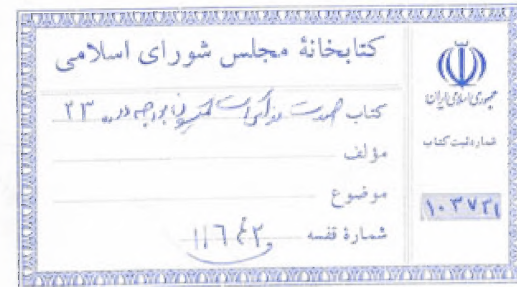 کتابخانهٔ مجلس شورای اسلامی
کتاب صورت مذاکرات کمیسیون بودجه دوره ۲۳
مؤلف
موضوع
شمارهٔ قفسه ۱۱۶۴۲
جمهوری اسلامی ایران
شماره ثبت کتاب
۱۰۳۷۳۱